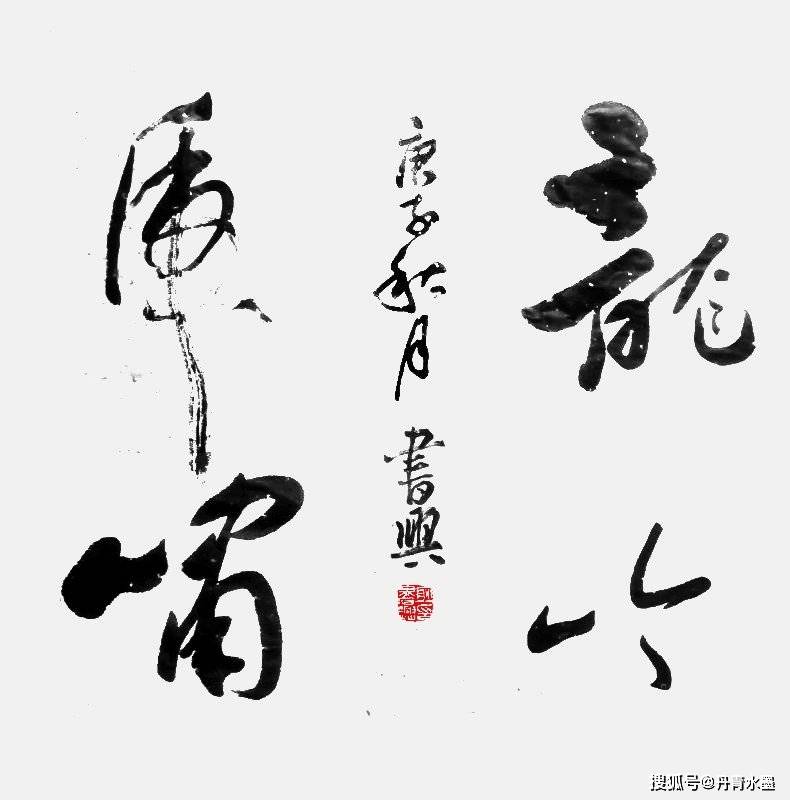 龍吟
庚子秋月 書興
虎嘯
搜狐号@丹青水墨